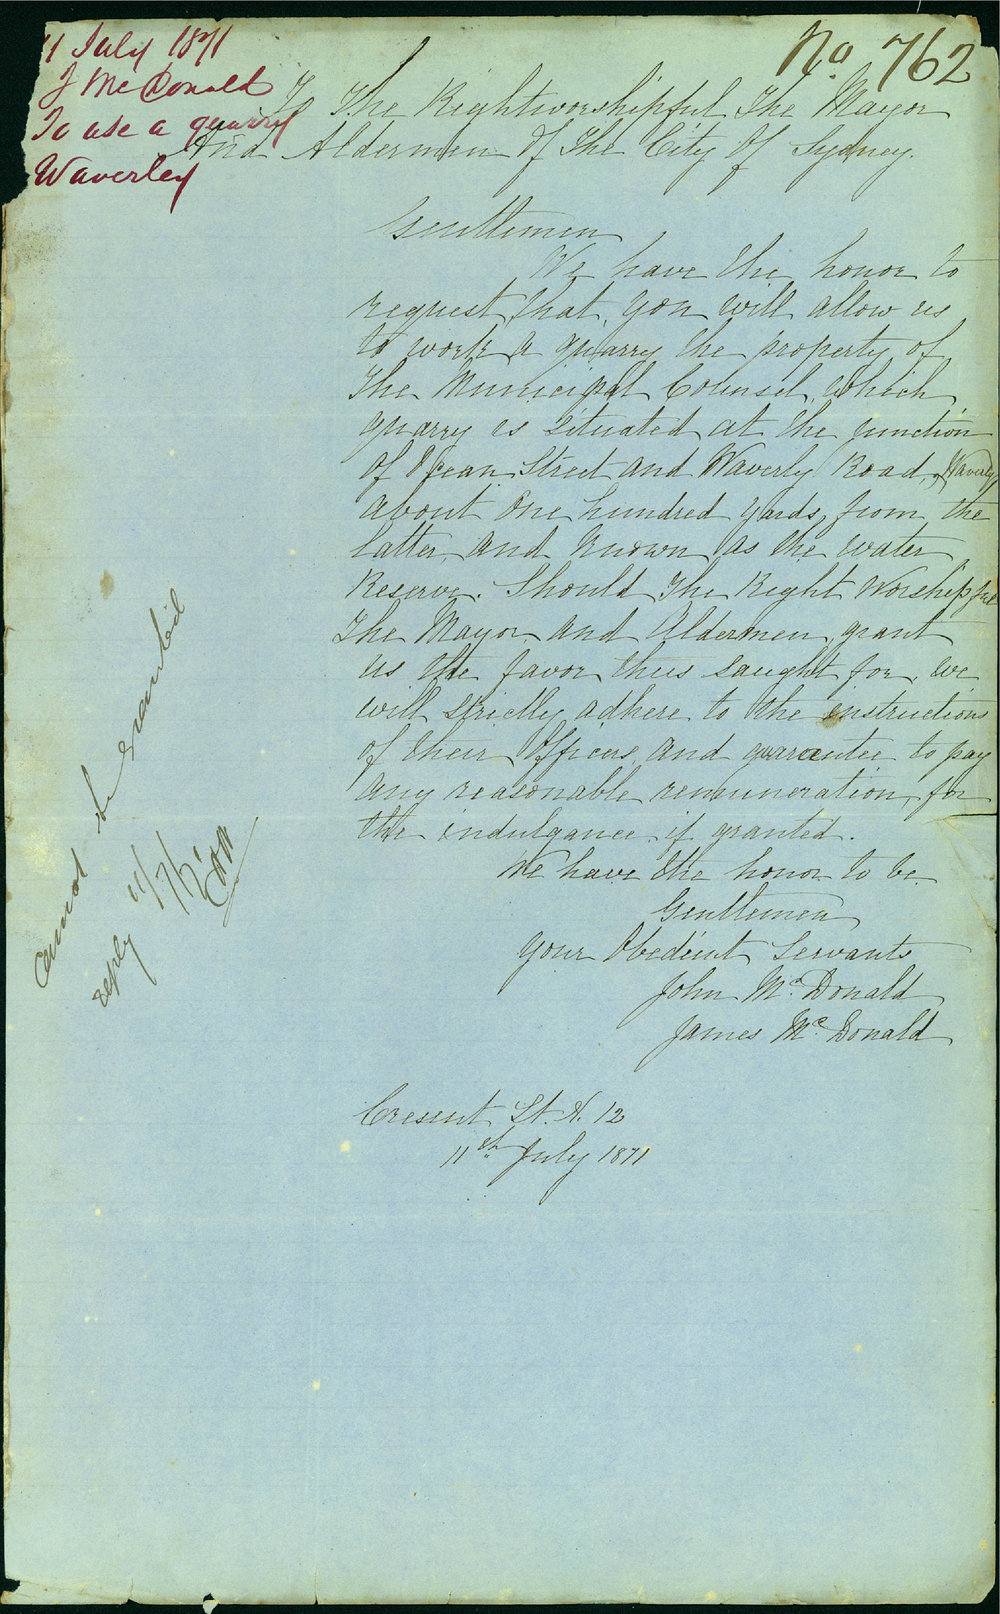 11 July 1871
J McDonald
To use a quarry
Waverley
No 762
To The Rightworshipful The Mayor
And Aldermen Of The City Of Sydney.
Gentlemen
We have the honor to
request that you will allow us
to work a quarry the property of
the Municipal Counsel, which
quarry is situated at the junction
of Ocean Street and Waverly Road, Waverly
about One hundred yards from the
latter and known as the water
Reserve. Should The Right Worshipful
The Mayor and Aldermen grant
us the favor thus saught for, we
will strictly adhere to the instructions
of their Officers and guarantee to pay
any reasonable remuneration for
the indulgance if granted.
We have the honor to be
Gentlemen
Your Obedient Servants
John Mc Donald
James Mc Donald
Cresent St. N. 12
11th July 1871
Cannot be granted
reply 11/7/71